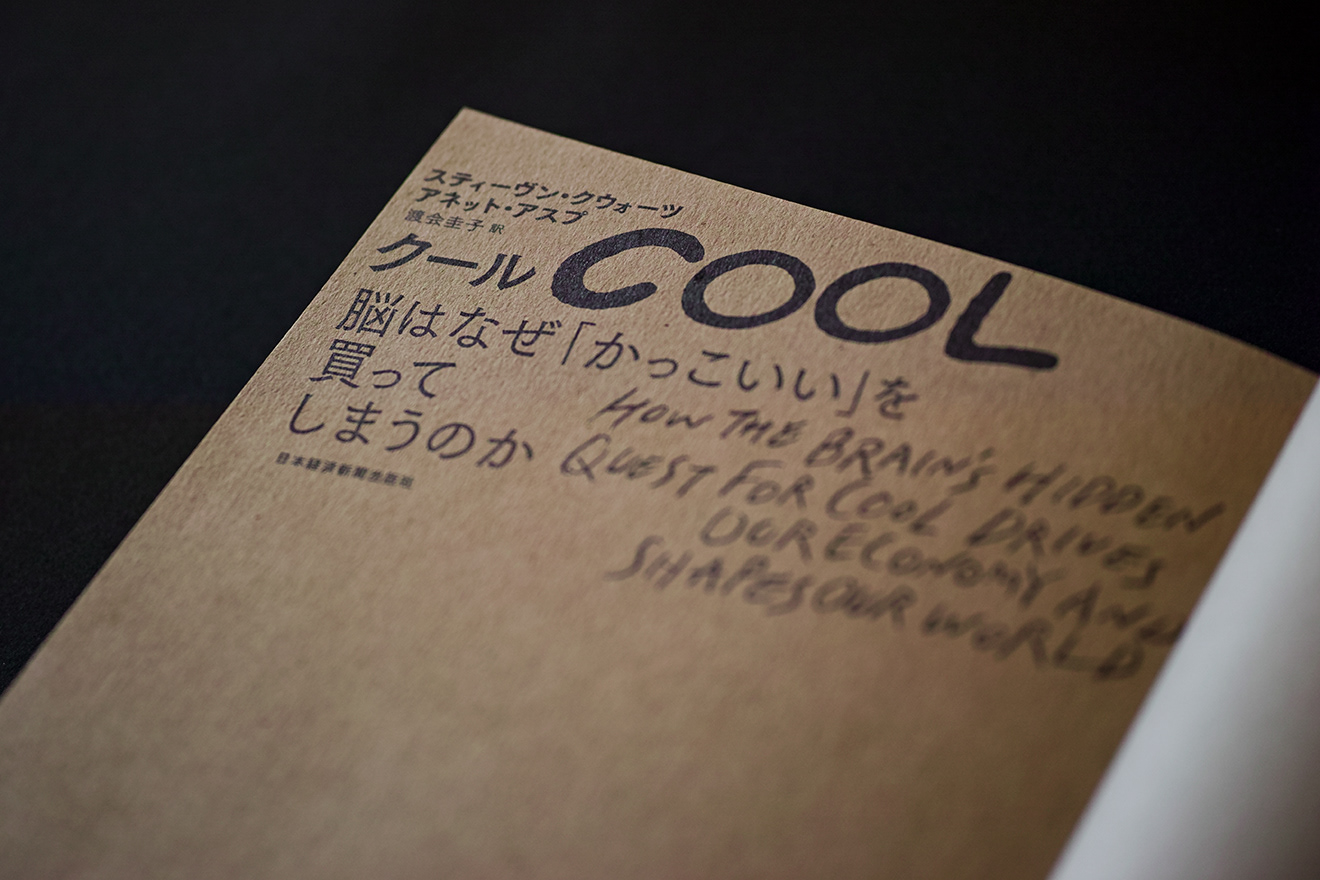 スティーヴン・クウォーツ
アネット・アスプ
渡会圭子 訳
クール COOL
脳はなぜ「かっこいい」を
買って
しまうのか
日本経済新聞出版社
HOW THE BRAIN'S HIDDEN
QUEST FOR COOL DRIVES
OUR ECONOMY AND
SHAPES OUR WORLD